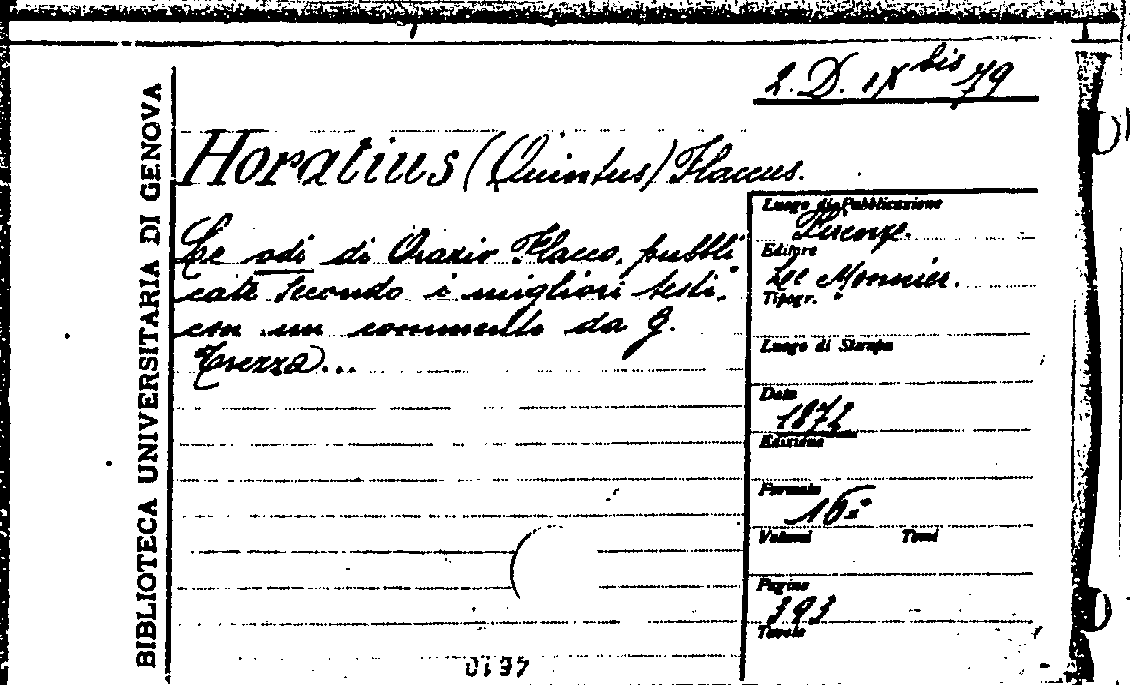 2. D. IX bis 79
BIBLIOTECA UNIVERSITARIA DI GENOVA
Horatius (Quintus) Flaccus.
Le odi di Orazio Flacco, pubbli
cate secondo i migliori testi.
con un commento da G.
Trezza...
Luogo di Pubblicazione
Firenze.
Editore
Le Monnier.
Tipogr. "
Luogo di Stampa
Data
1872
Edizione
Formato
16°
Volumi Tomi
Pagine
393
Tavole